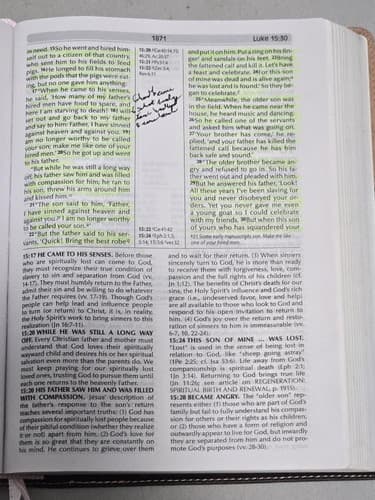 1871
Luke 15:30
in need. 15 So he went and hired him-
self out to a citizen of that country,
who sent him to his fields to feed
pigs. 16 He longed to fill his stomach
with the pods that the pigs were eat-
ing, but no one gave him anything.
17 "When he came to his senses,
he said, 'How many of my father's
hired men have food to spare, and
here I am starving to death! 18 I will
set out and go back to my father
and say to him: Father, I have sinned
against heaven and against you. 19 I
am no longer worthy to be called
your son; make me like one of your
hired men.' 20 So he got up and went
to his father.
"But while he was still a long way
off, his father saw him and was filled
with compassion for him; he ran to
his son, threw his arms around him
and kissed him.
21 "The son said to him, 'Father,
I have sinned against heaven and
against you. I am no longer worthy
to be called your son.'
22 "But the father said to his ser-
vants, 'Quick! Bring the best robe
and put it on him. Put a ring on his fin-
ger and sandals on his feet. 23 Bring
the fattened calf and kill it. Let's have
a feast and celebrate. 24 For this son
of mine was dead and is alive again;
he was lost and is found.' So they be-
gan to celebrate.
25 "Meanwhile, the older son was
in the field. When he came near the
house, he heard music and dancing.
26 So he called one of the servants
and asked him what was going on.
27 'Your brother has come,' he re-
plied, 'and your father has killed the
fattened calf because he has him
back safe and sound.'
28 "The older brother became an-
gry and refused to go in. So his fa-
ther went out and pleaded with him.
29 But he answered his father, 'Look!
All these years I've been slaving for
you and never disobeyed your or-
ders. Yet you never gave me even
a young goat so I could celebrate
with my friends. 30 But when this son
of yours who has squandered your
15:17 HE CAME TO HIS SENSES. Before those
who are spiritually lost can come to God,
they must recognize their true condition of
slavery to sin and separation from God (vv.
14-17). They must humbly return to the Father,
admit their sin and be willing to do whatever
the Father requires (vv. 17-19). Though God's
people can help lead and influence people
to turn (or return) to Christ, it is, in reality,
the Holy Spirit's work to bring sinners to this
realization (Jn 16:7-11).
15:20 WHILE HE WAS STILL A LONG WAY
OFF. Every Christian father and mother must
understand that God loves their spiritually
wayward child and desires his or her spiritual
salvation even more than the parents do. We
must keep praying for our spiritually lost
loved ones, trusting God to pursue them until
each one returns to the heavenly Father.
15:20 HIS FATHER SAW HIM AND WAS FILLED
WITH COMPASSION. Jesus' description of
the father's response to the son's return
teaches several important truths: (1) God has
compassion for spiritually lost people because
of their pitiful condition (whether they realize
it or not) apart from him. (2) God's love for
them is so great that they are constantly on
his mind. He continues to grieve over them
and to wait for their return. (3) When sinners
sincerely turn to God, he is more than ready
to receive them with forgiveness, love, com-
passion and the full rights of his children (cf.
Jn 1:12). The benefits of Christ's death for our
sins, the Holy Spirit's influence and God's rich
grace (i.e., undeserved favor, love and help)
are all available to those who look to God and
respond to his open invitation to return to
him. (4) God's joy over the return and resto-
ration of sinners to him is immeasurable (vv.
6-7, 10, 22-24).
15:24 THIS SON OF MINE ... WAS LOST.
"Lost" is used in the sense of being lost in
relation to God, like "sheep going astray"
(1Pe 2:25; cf. Isa 53:6). Life away from God's
companionship is spiritual death (Eph 2:1;
1Jn 3:14). Returning to God brings true life
(Jn 11:26; see article on REGENERATION:
SPIRITUAL BIRTH AND RENEWAL, p.
15:28 BECAME ANGRY. The "older son" rep-
resents either (1) those who are part of God's
family but fail to fully understand his compas-
sion for others or their rights as his children,
or (2) those who have a form of religion and
outwardly appear to live for God, but inwardly
they are separated from him and do not pro-
mote God's purposes (vv. 28-30).